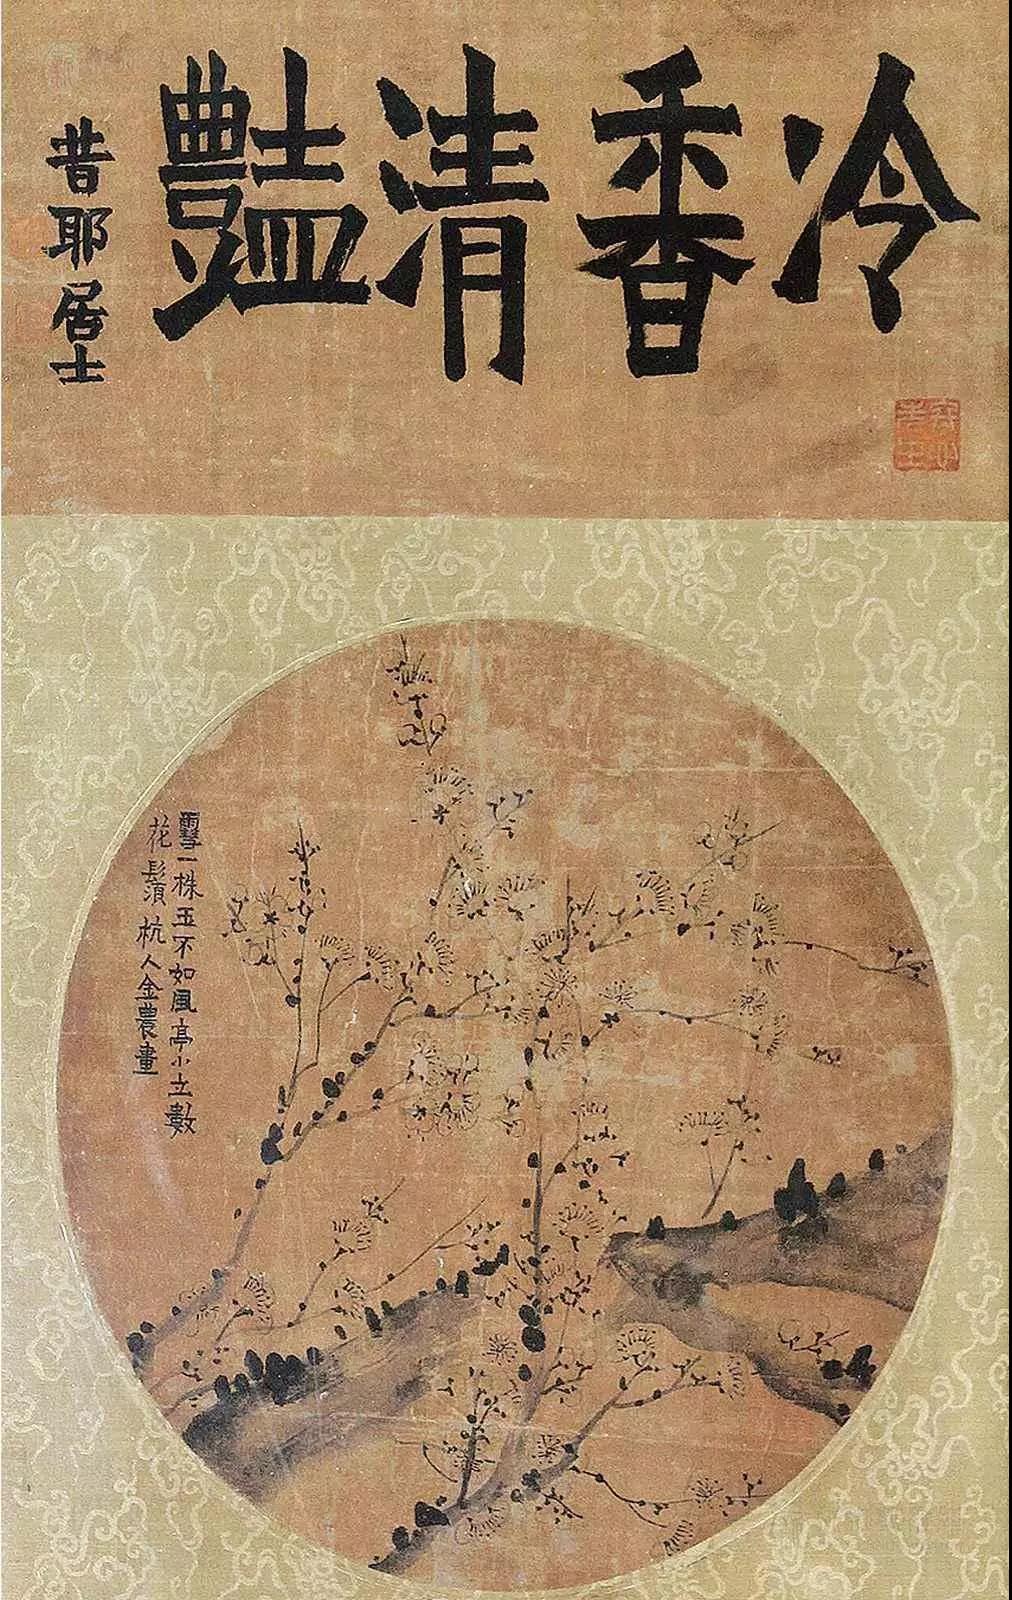 冷香清豔
昔耶居士
䨮一株玉不如風亭小立數
花鬚杭人金農畫